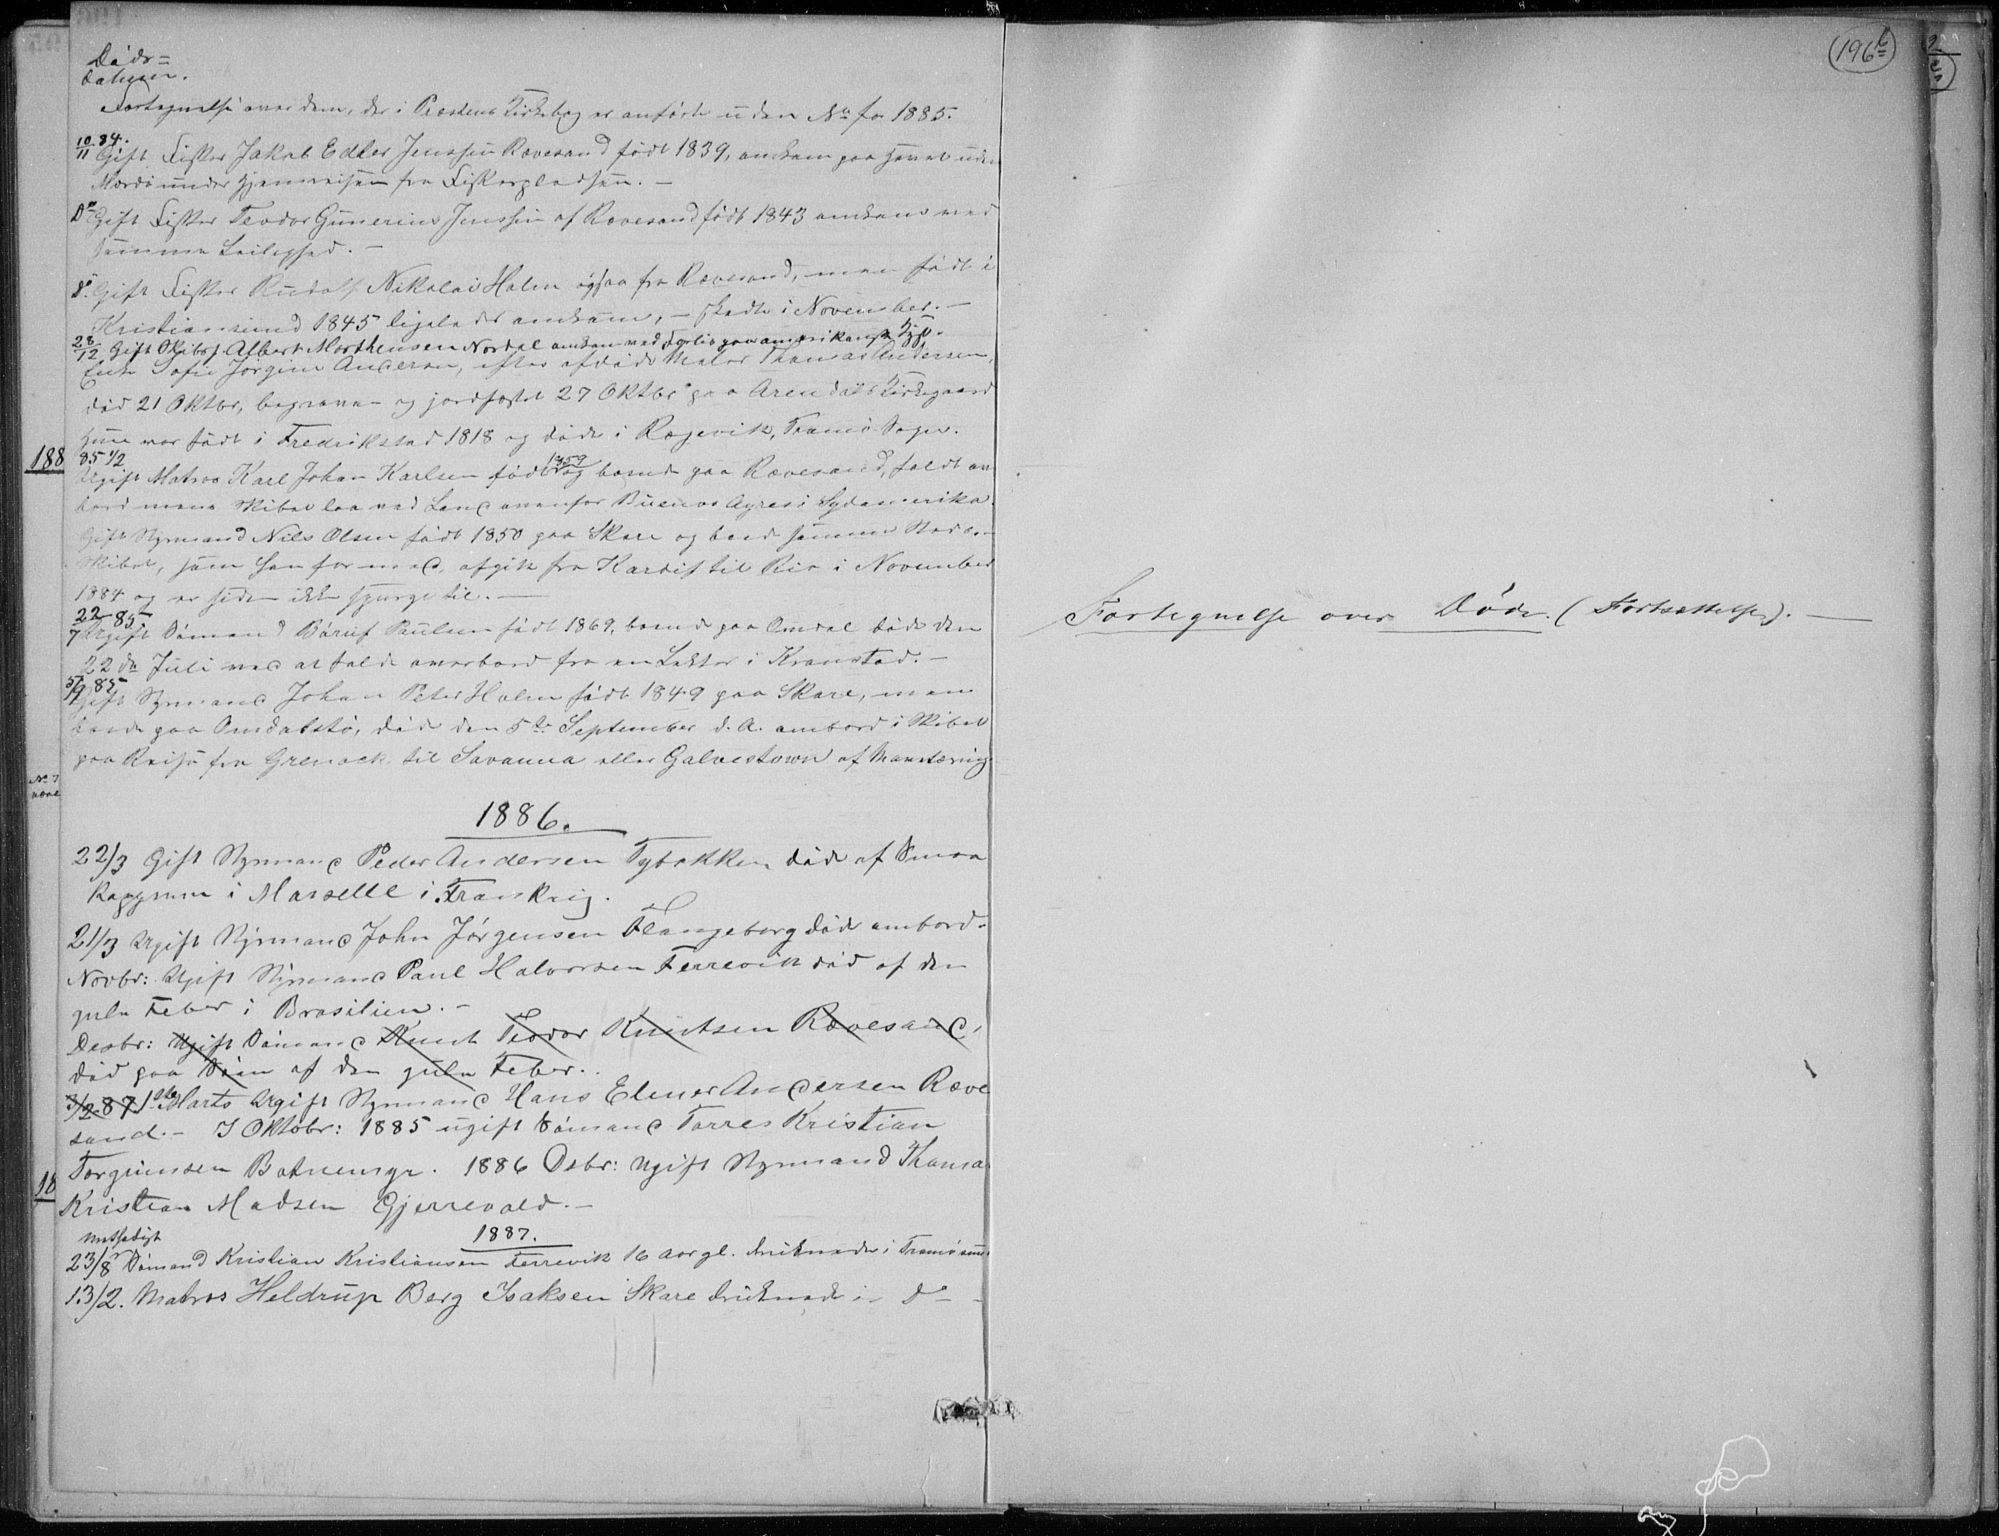 Døds=
datum.
Fortegnelse over dem, der i Præstens Kirkebog er anførte uden No for 1885.
10/11 84. Gift Fisker Jakob Edler Jenssen Rævesand født 1839, omkom paa Havet uden
Mærdø under Hjemreisen fra Fiskerpladsen. -
Do Gift Fisker Teodor Gunerius Jenssen af Rævesand født 1843 omkom ved
samme Leilighed. -
Do Gift Fisker Rudolf Nikolai Holm ogsaa fra Rævesand, men født i
Kristiansund 1845 ligeledes omkom, - skedte i November. -
28/12 Gift Skibsf. Albert Morthensen Nordal omkom ved Forlis paa amerikanske Kyst.
Enke Sofie Jørgine Anderson, efter afdøde Maler Thomas Andersen,
død 21 Oktbr, begraven og jordfæstet 27 Oktbr paa Arendals Kirkegaard
Hun var født i Fredrikstad 1818 og døde i Rægevik, Tromø Sogn.
188
85 1/2
Ugift Matros Karl Johan Karlsen født 1859 og boende paa Rævesand, faldt over
bord mens Skibet laa ved Land ovenfor Buenos Ayres i Sydamerika.
Gift Styrmand Nils Olsen født 1850 paa Skare og boede samme Sted. -
Skibet, som han for med, afgik fra Kardif til Rio i November
1884 og er siden ikke spurgt til. -
22/7 85 Ugift Sømand Børuf Paulsen født 1869, boende paa Omdal døde den
22de Juli ved at falde overbord fra en Lekter i Kronstad. -
5/9 85 Gift Styrmand Johan Peter Holm født 1849 paa Skare, men
boede paa Omdalstø, død den 5te September d. A. ombord i Skibet
paa Reise fra Grenock til Savanna eller Galvestown af Mavetæring
No 7
1886.
22/3 Gift Styrmand Peder Andersen Tybakken død af Smaa
kopperne i Marselle i Frankrig.
21/3 Ugift Styrmand John Jørgensen Flangeborg død ombord.
Novbr: Ugift Styrmand Paul Halvorsen Færrevik død af den
gule Feber i Brasilien. -
Desbr: Ugift Sømand Knut Teodor Knutsen Rævesand,
død paa Søen af den gule Feber.
3/2 87 1ste Marts Ugift Styrmand Hans Elener Andersen Ræve
sand. - I Oktobr: 1885 ugift Sømand Torres Kristian
Torgrimsen Botnemyr. 1886 Dsbr: Ugift Styrmand Thomas
18
Kristian Madsen Gjerrevald. -
1887.
23/8 Sømand Kristian Kristiansen Færrevik 16 Aar gl. druknede i Tromøsund
13/2. Matros Heldrup Berg Isaksen Skare druknede i Do -
196 b
Fortegnelse over Døde. (Fortsættelse). -